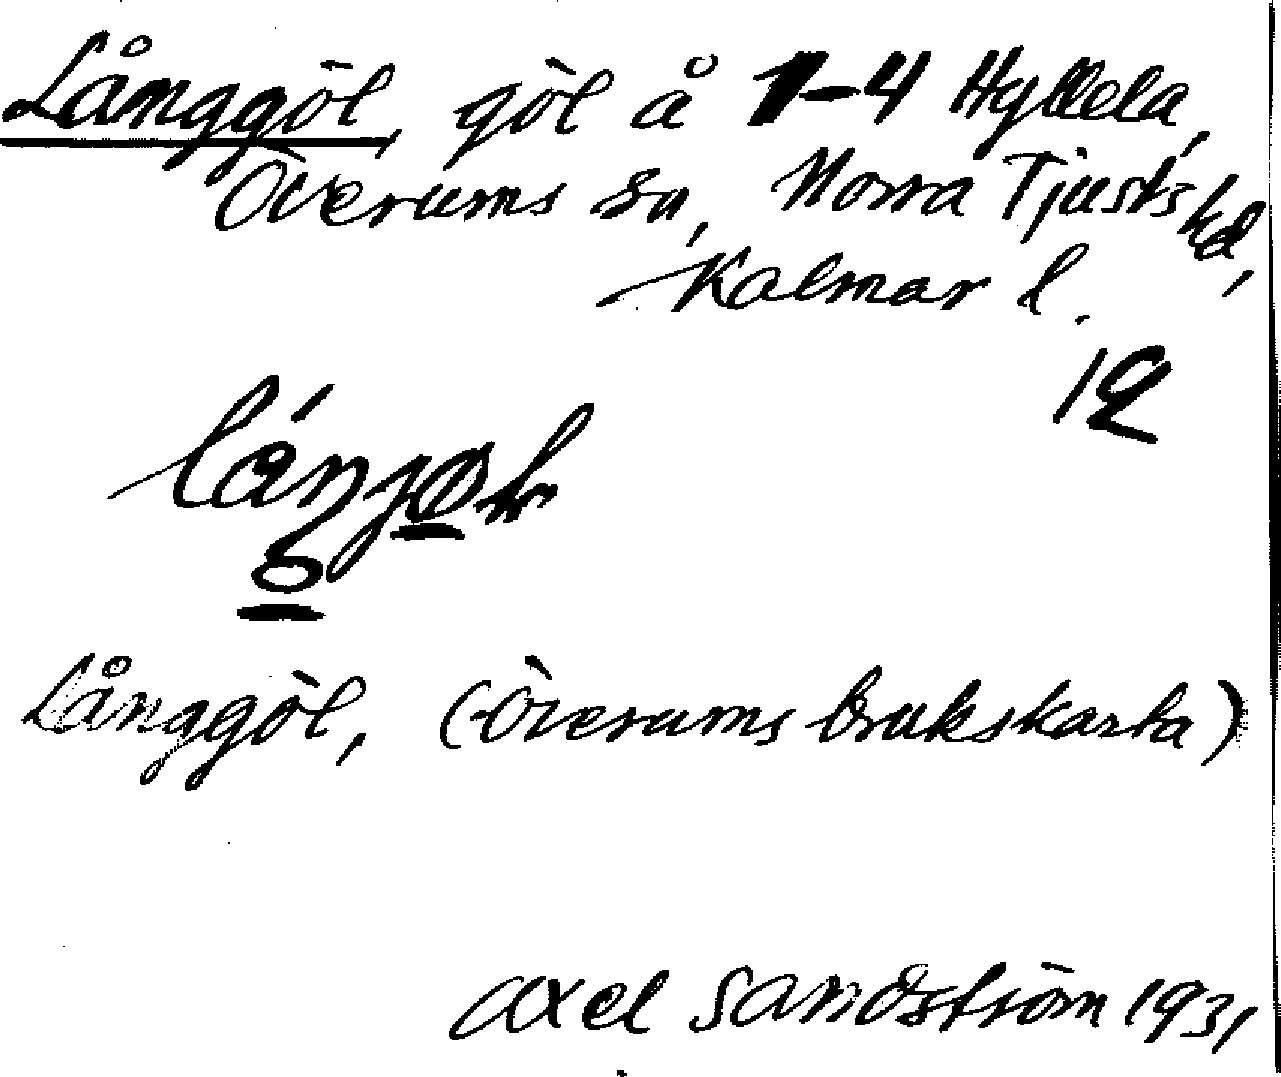 Långgöl, göl å 1-4 Hyllela,
Överums sn, Norra Tjusts hd,
Kalmar l.
12
Långgöl, (Överums brukskarta)
Axel Sandström 1931